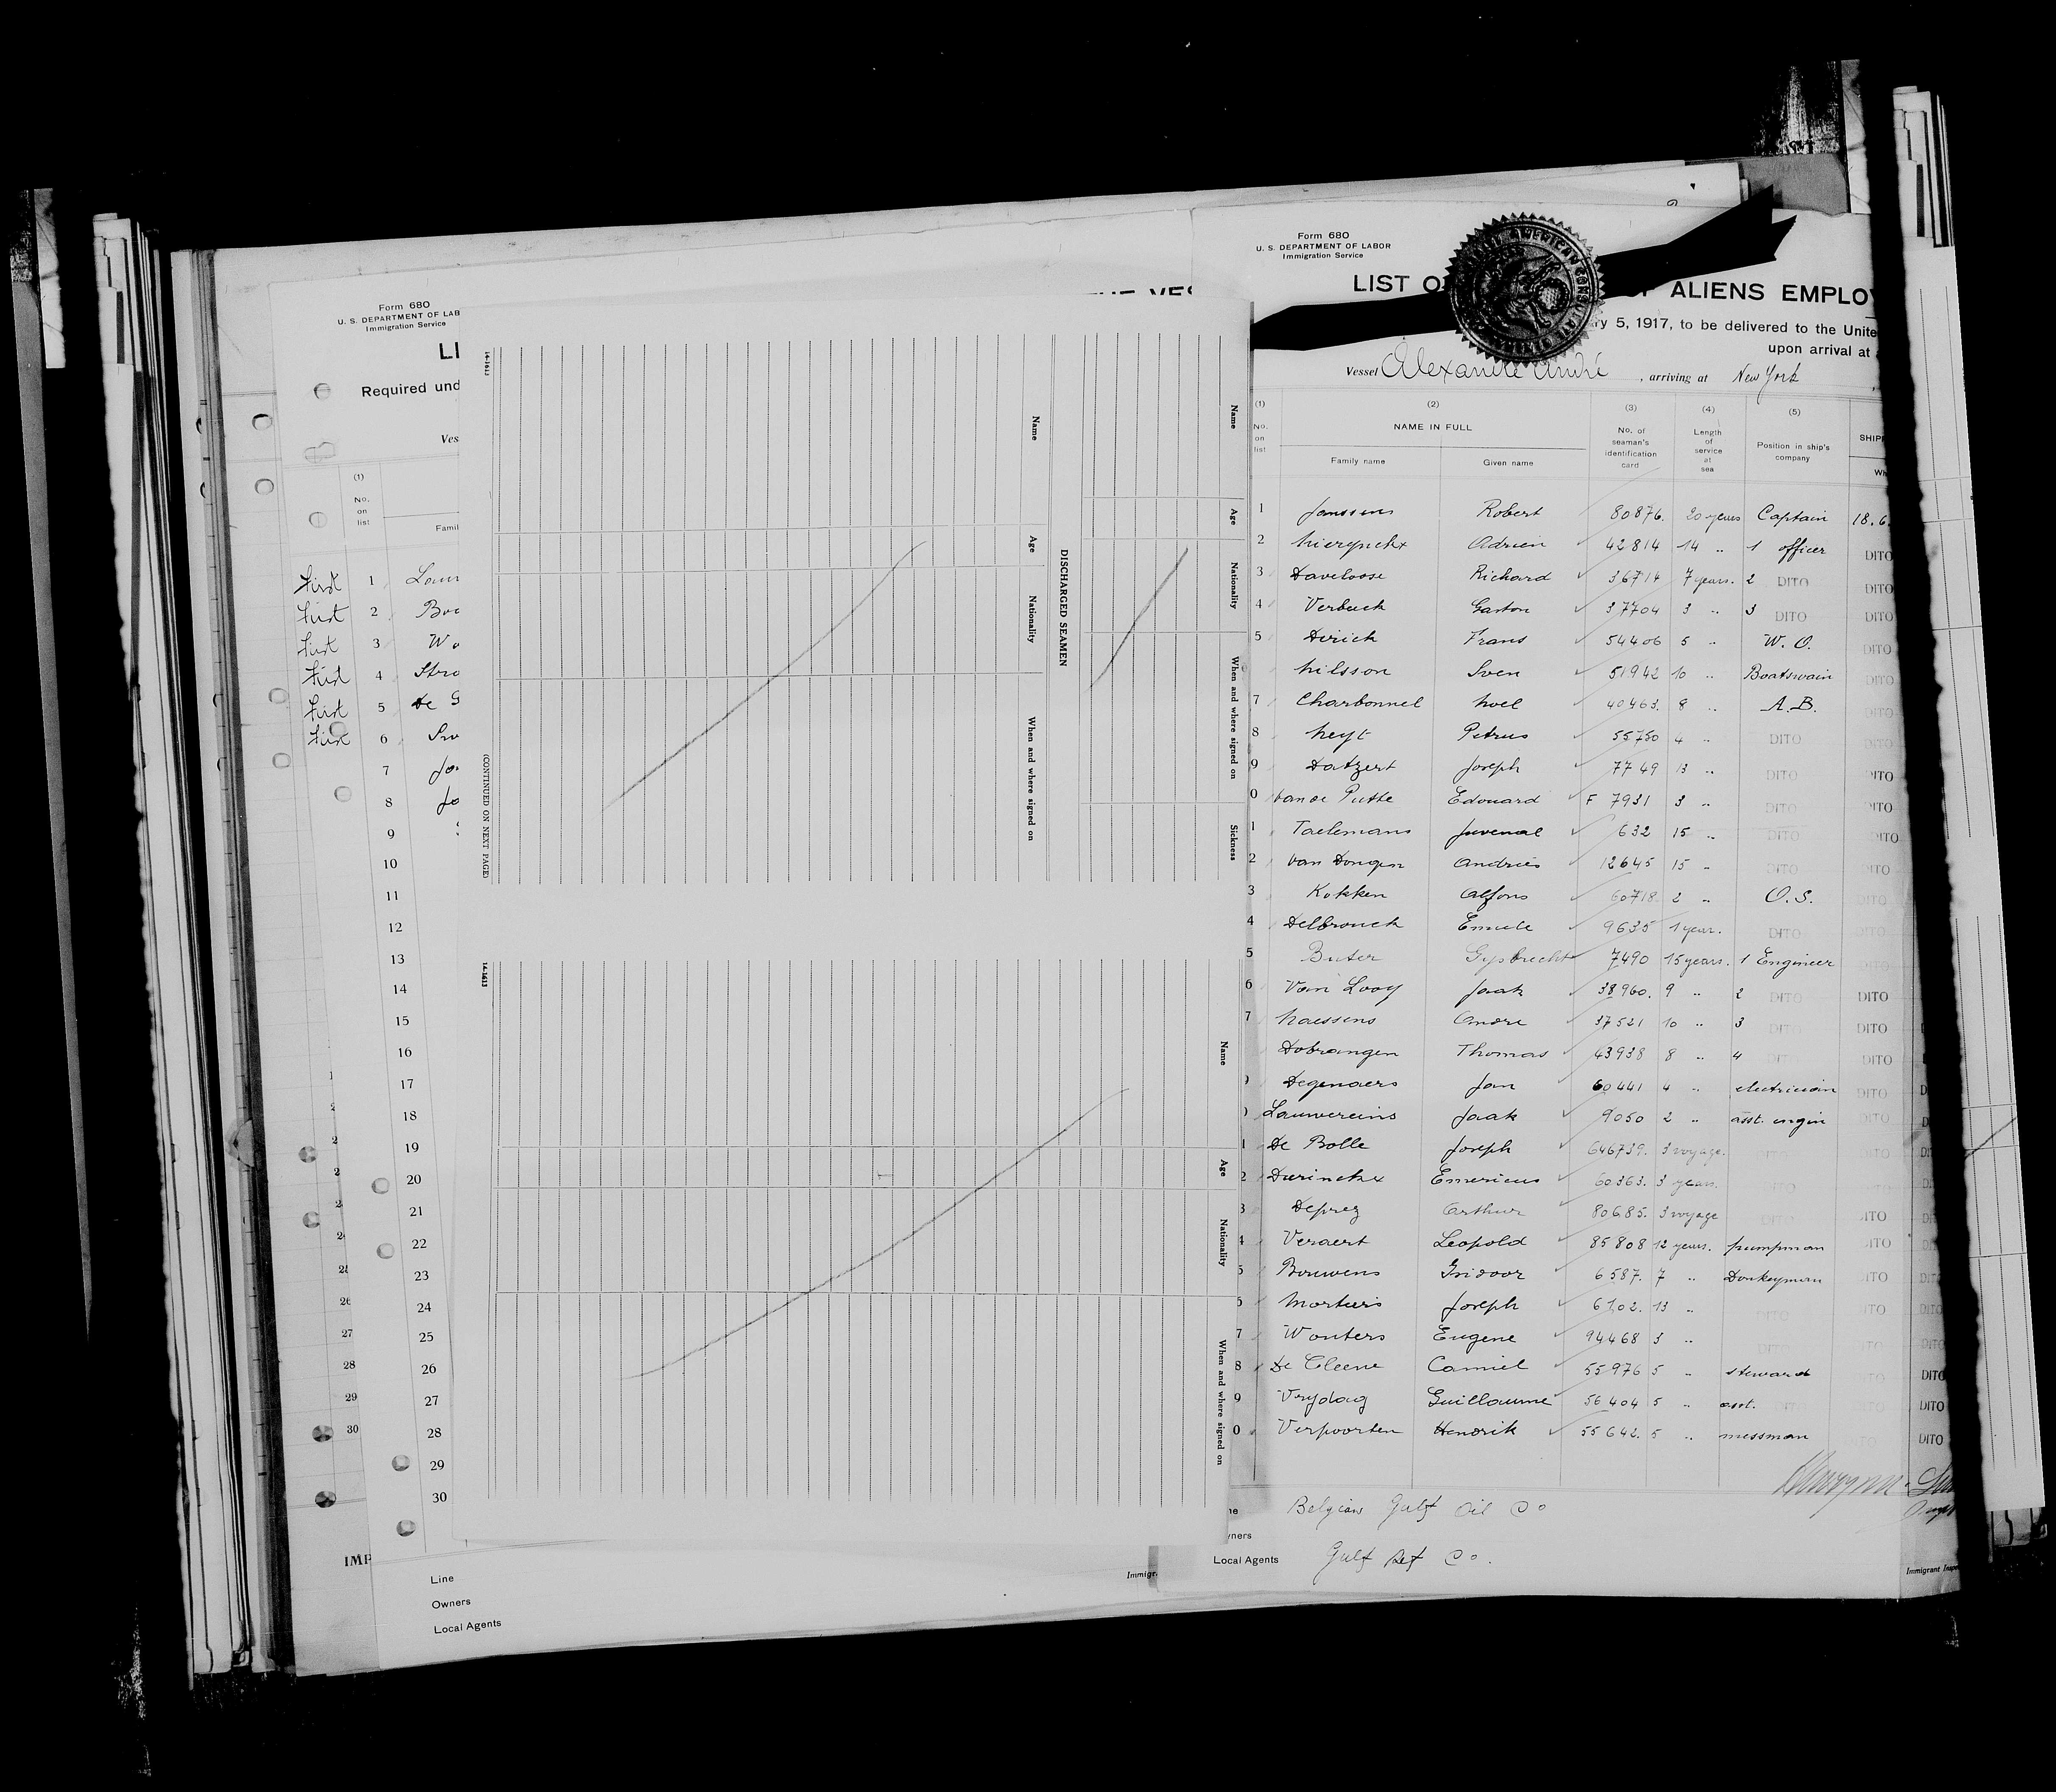 Form 680
U. S. DEPARTMENT OF LAB
Immigration Service
LI
Required und
Ves
(1)
No.
on
list
Famil
First 1 Laur
First 2 Boo
First 3 Wa
First 4 Stro
First 5 De G
First 6
7 Jo
8 Jo
9
10
11
12
13
14
15
16
17
18
19
20
21
22
23
24
25
26
27
28
29
30
25
26
27
28
29
30
IMP
Line
Owners
Local Agents
Immigr
14-1613
Name
Age
Nationality
When and where signed on
Sickness
DISCHARGED SEAMEN
Name
Age
Nationality
When and where signed on
(CONTINUED ON NEXT PAGE)
14-1613
Name
Age
Nationality
When and where signed on
Form 680
U. S. DEPARTMENT OF LABOR
Immigration Service
AMERICAN CONSULATE GENERAL
LIST O F ALIENS EMPLOY
ry 5, 1917, to be delivered to the Unite
upon arrival at
Vessel Alexandre André , arriving at New York
(1) (2) (3) (4) (5)
No.
on
list
NAME IN FULL
Family name Given name
No. of
seaman's
identification
card
Length
of
service
at
sea
Position in ship's
company
SHIPP
Wh
1 Janssens Robert 80876. 20 years Captain 18.6.
2 Nierynckx Adrien 42814 14 " 1 officer DITO
3 Daveloose Richard 36714 7 years. 2 DITO DITO
4 Verbeeck Gaston 37704 3 " 3 DITO DITO
5 Dirick Frans 54406 5 " W. O. DITO
Nilsson Sven 51942 10 " Boatswain DITO
7 Charbonnel Noel 40463. 8 " A.B. DITO
8 Neyt Petrus 55750 4 " DITO DITO
9 Datzert Joseph 7749 13 " DITO DITO
0 Van de Putte Edouard F 7931 3 " DITO DITO
1 Taelemans Juvenal 632 15 " DITO DITO
2 Van Dongen Andries 12645 15 " DITO DITO
3 Kokken Alfons 60718 2 " O.S. DITO
4 Delbrouck Emiele 9635 1 year. DITO DITO
5 Buter Gysbrecht 7490 15 years. 1 Engineer
6 Van Looy Jaak 38960. 9 " 2 DITO DITO
7 Naessens Andre 37521 10 " 3 DITO DITO
Dobrangen Thomas 43938 8 " 4 DIT DITO
Degenaers Jan 60441 4 " electrician DITO
Lauwereins Jaak 9050 2 " asst. engin DITO
1 De Bolle Joseph 646739. 3 voyage. DITO DITO
2 Durinckx Emericus 60363. 3 years. DITO DITO
3 Deprez Arthur 80685. 3 voyage DITO DITO
4 Veraert Leopold 85808 12 years. pumpman DITO
5 Bouwens Isidoor 6587. 7 " Donkeyman DITO
Mortiers Joseph 6102. 13 " DITO DITO
7 Wouters Eugene 94468 3 " DITO DITO
8 De Cleene Camiel 55976 5 " steward DITO
9 Vrydag Guillaume 56404 5 " asst. DITO
0 Verpoorten Hendrik 55642. 5 " messman DITO
ne Belgian Gulf Oil Co
ners
Local Agents Gulf Ref Co.
Immigrant Inspe